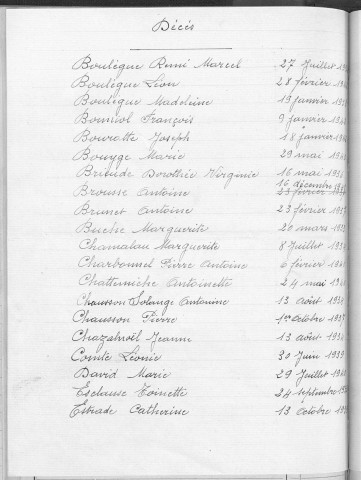 Décés
Boulègue Remi Marcel 27 Juillet
Boulègue Léon 28 février
Boulègue Madeleine 19 janvier
François 9 janvier
Bouratte Joseph 18 janvier
Bouyge Marie 29 mai
Brioude Dorothée Virginie 16 mai
16 décembre
Brousse Antoine 23 février
Brunet Antoine 23 février
Buche Marguerite 20 mars
Chamalou Marguerite 8 Juillet
Charbonnel Pierre Antoine 6 février
Antoinette 24 mai
Chausson Solange Antonine 13 août
Chausson Pierre 1er octobre
Chazalnoël Jeanne 13 août
Comte Léonie 30 Juin
David Marie 29 Juillet
Esclause Toinette 24 septembre
Estrade Catherine 13 octobre